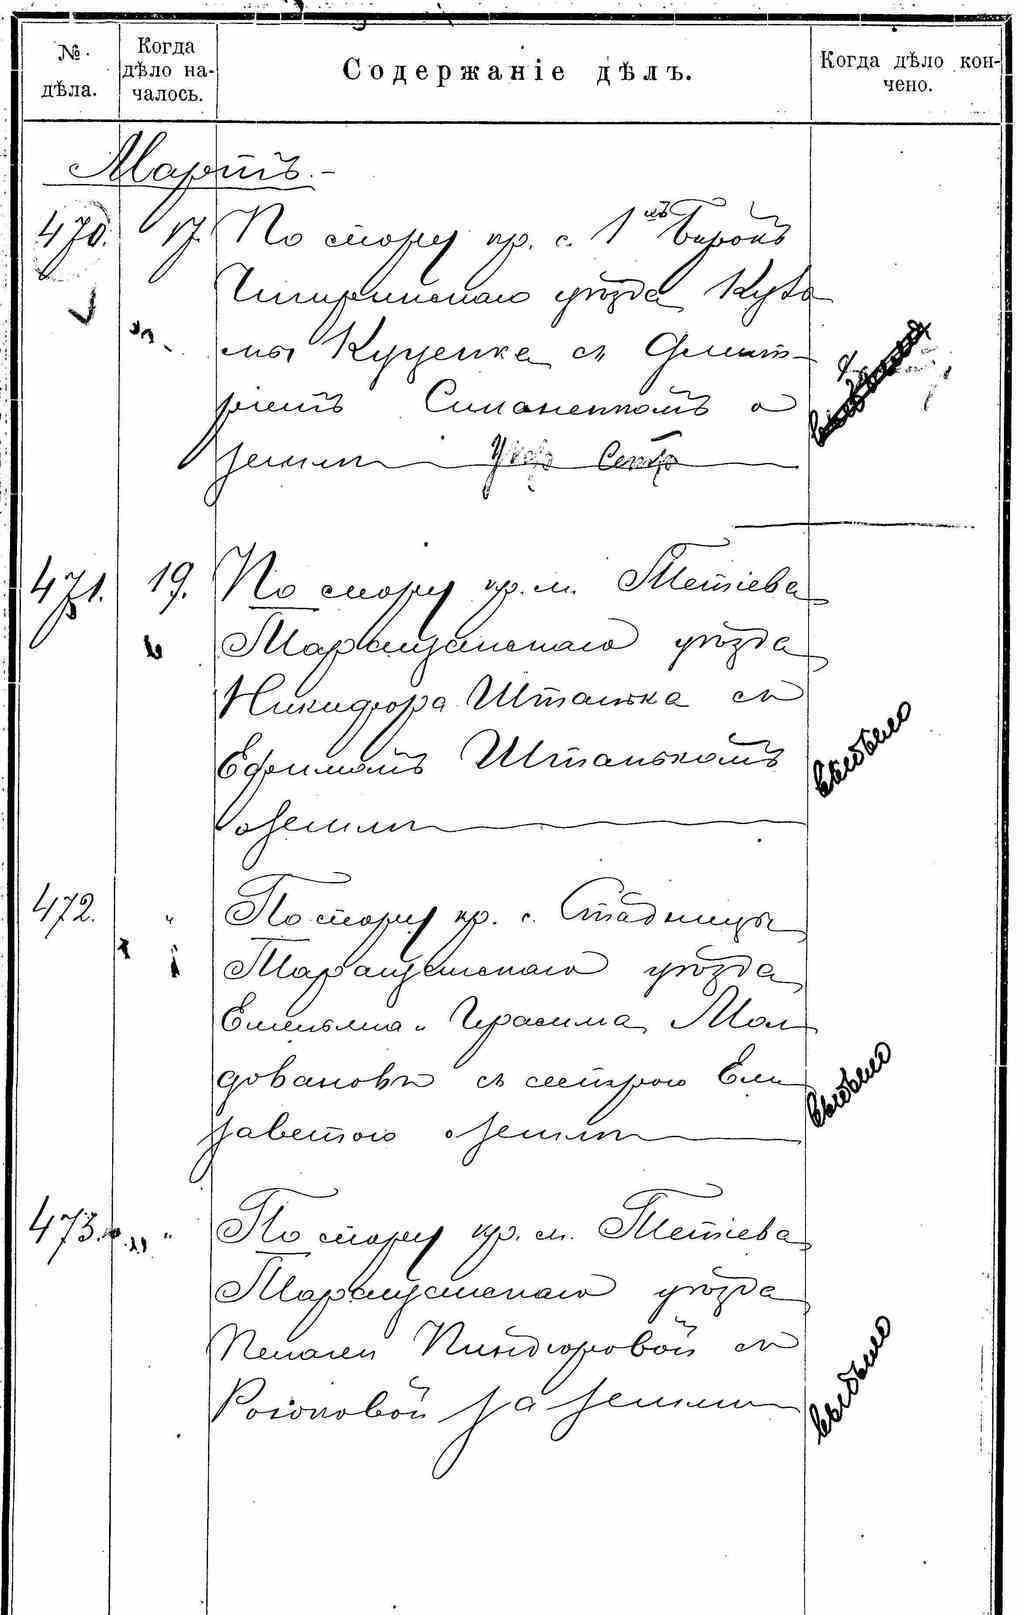 № дѣла.
Когда дѣло на-
чалось.
Содержаніе дѣлъ.
Когда дѣло кон-
чено.
Мартъ.-
470. 17. По спору кр. с. 1
Чигиринскаго уѣзда Кузь
мы Куценка съ Дмит-
ріемъ Симоненкомъ о
землѣ
471. 19. По спору кр. м. Тетіева
Таращанскаго уѣзда
Никифора Штанька съ
Ефимомъ Штанькомъ
о землѣ
выбыло
472. " По спору кр. с. Стадницы
Таращанскаго уѣзда
Емельяна и Герасима Мол
довановъ съ сестрою Ели
заветою о землѣ
выбыло
473. " По спору кр. м. Тетіева
Таращанскаго уѣзда
Пелагеи Киндюровой съ
Рогоковой за землю
выбыло